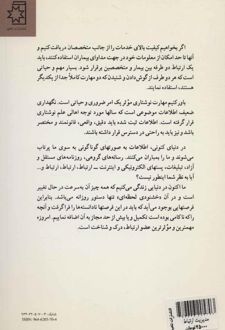 اگر بخواهیم کیفیت بالای خدمات را از جانب متخصصان دریافت کنیم و
آنها تا حد امکان از معلومات خود در جهت مداوای بیماران استفاده کنند، باید
یک ارتباط دو طرفه بین بیمار و متخصصین برقرار شود. بسیار مهم و حیاتی
است که هر دو طرف از گوش دادن و شنیدن که دو مهارت کاملاً جدا از یکدیگر
هستند، استفاده نمایند.
باور کنیم مهارت نوشتاری مؤثر یک امر ضروری و حیاتی است. نگهداری
ضعیف اطلاعات موضوعی است که سالها مورد توجه اهالی علم نوشتاری
قرار گرفته است. اطلاعات ثبت شده باید دقیق، واقعی، قانونمند و مختصر
باشد و نیز باید به راحتی در دسترس قرار داشته باشند.
در دنیای کنونی، اطلاعات به صورتهای گوناگونی به سوی ما پرتاب
می‌شوند و ما را بمباران می‌کنند. رسانه‌های گروهی، روزنامه‌های مستقل و
آزاد، تبلیغات، پستهای الکترونیکی و اینترنت ــ ارتباط، ارتباط، ارتباط و...
آیا به نظر شما اینطور نیست؟
ما اکنون در دنیایی زندگی می‌کنیم که همه چیز آن به‌سرعت در حال تغییر
است و در آن «خشنودی لحظه‌ای»، تنها دستور روزانه می‌باشد. بنابراین
فرصتهایی بوجود می‌آید که باید در این فرصتها نادانسته‌ها را فراگرفت و آنچه
را که تاکنون بوده است تکمیل و یا بیش از حد مجاز به آن اضافه نماییم. امروزه
مهمترین و مؤثرترین عضو ارتباط، درک و شناخت است.
مدیریت ارتباط